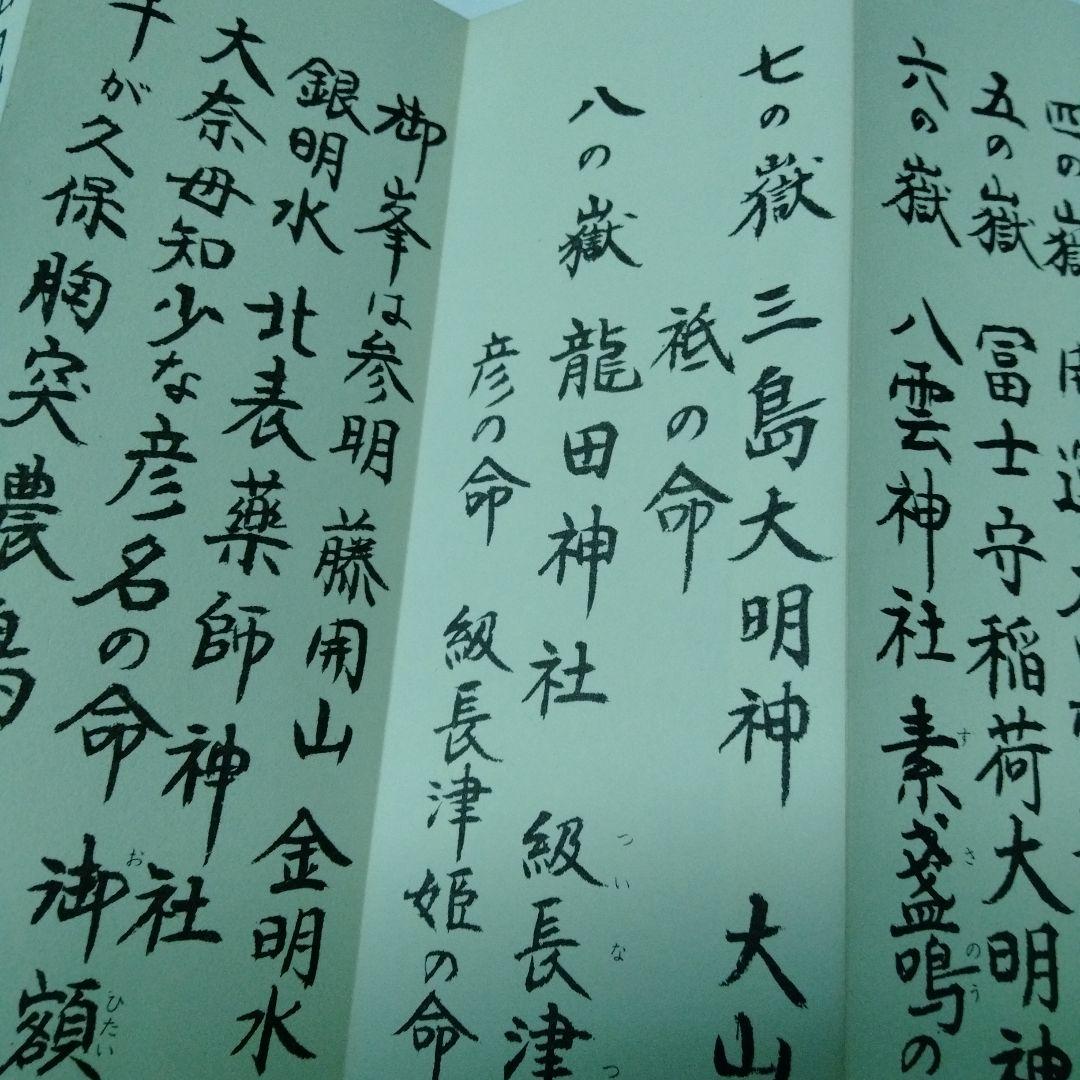 四の嶽
五の嶽 冨士守稲荷大明神
六の嶽 八雲神社 素盞鳴の
すさのう
七の嶽 三島大明神 大山
祗の命
八の嶽 龍田神社 級長津
ついなつ
彦の命 級長津姫の命
御峯は参明 藤開山 金明水
銀明水 北表薬師神社
大奈毋知少な彦名の命 御額
おひたい
が久保胸突 農鳥